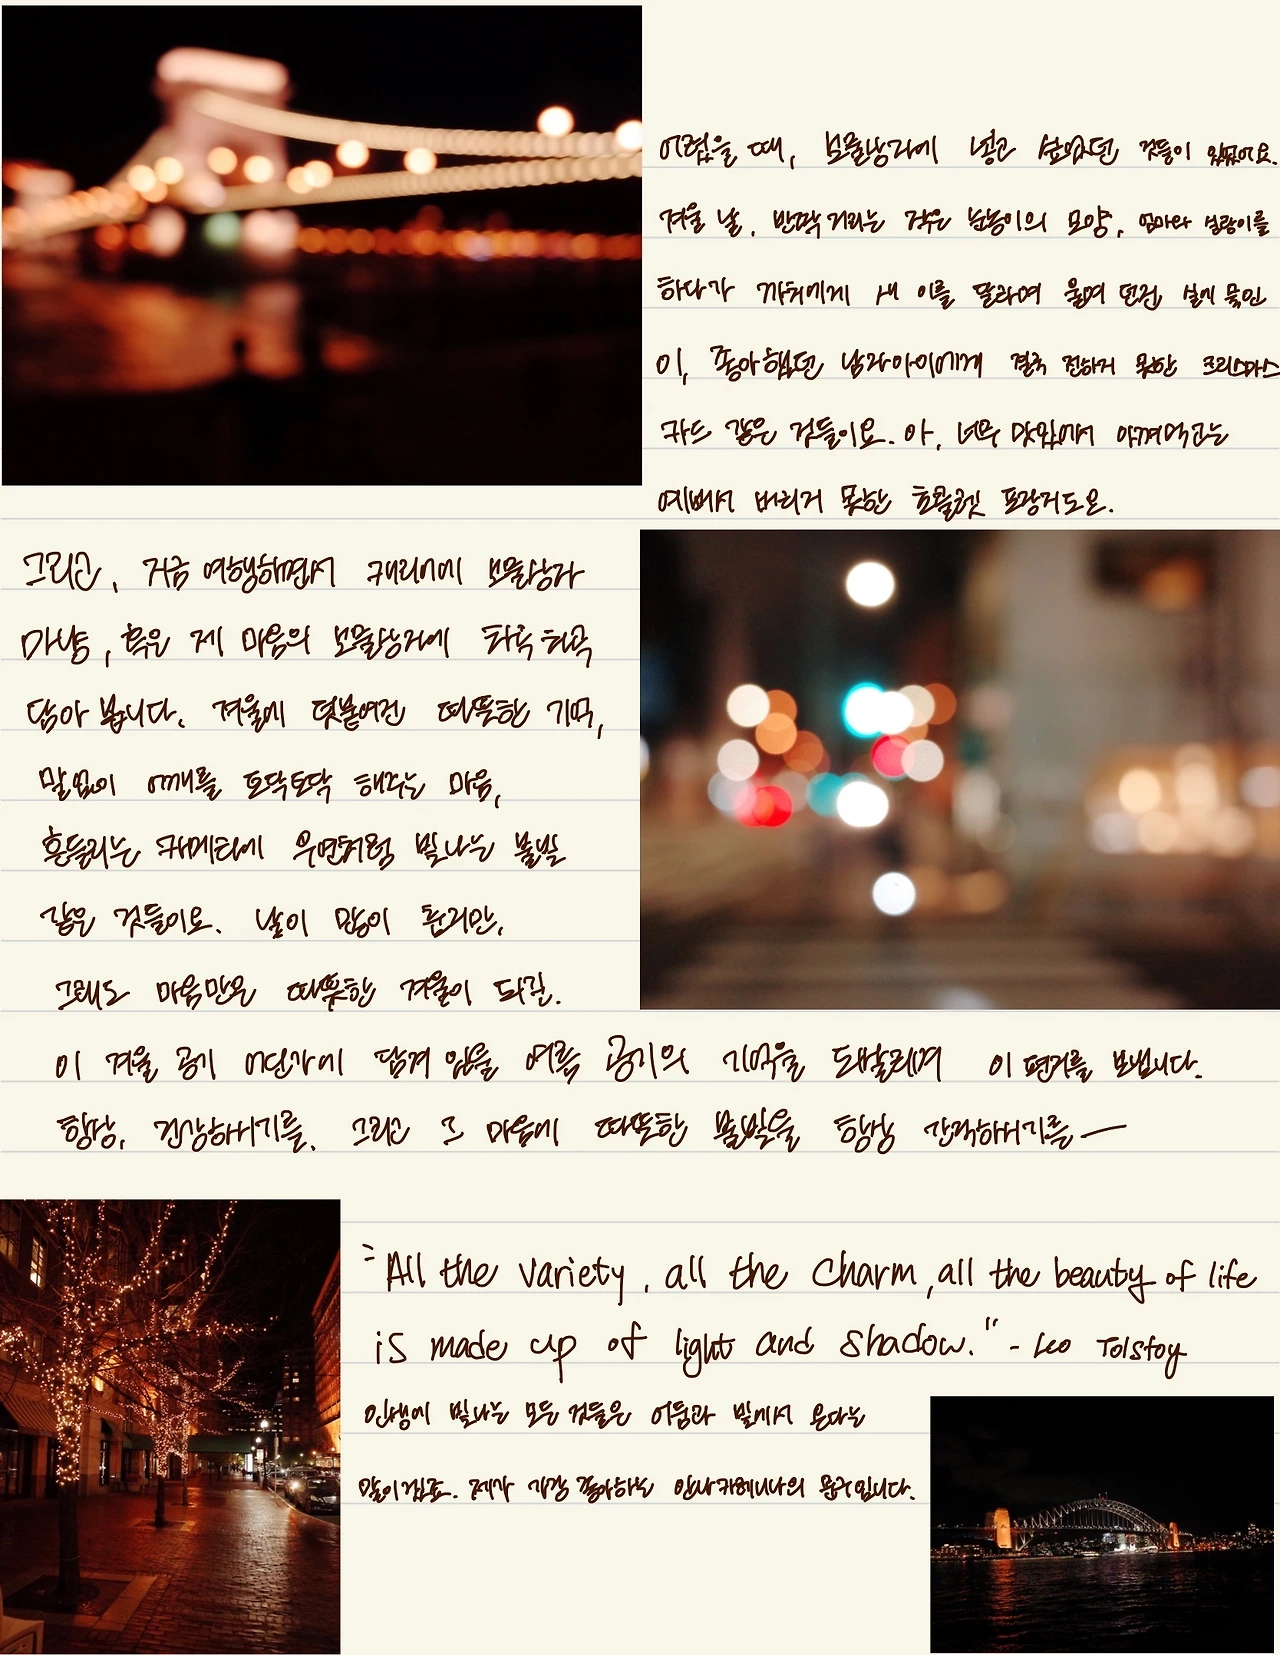 어렸을 때, 보물상자에 넣고 싶었던 것들이 있었어요.
겨울 날, 반짝거리는 작은 눈송이의 모양, 엄마와 실랑이를
하다가 까치에게 새 이를 달라며 울며 던진 실에 묶인
이, 좋아했던 남자아이에게 결국 전하지 못한 크리스마스
카드 같은 것들이요. 아, 너무 맛있어서 아껴먹고는
예뻐서 버리지 못한 초콜렛 포장지도요.
그리고, 지금 여행하면서 캐리어에 보물상자
마냥, 혹은 제 마음의 보물상자에 차곡차곡
담아 봅니다. 겨울에 덧붙여진 따뜻한 기억,
말없이 어깨를 토닥토닥 해주는 마음,
흔들리는 카메라에 우연처럼 빛나는 불빛
같은 것들이요. 날이 많이 춥지만,
그래도 마음만은 따뜻한 겨울이 되길.
이 겨울 공기 어딘가에 담겨 있을 여름 공기의 기억을 되살리며 이 편지를 보냅니다.
항상, 건강하시기를. 그리고 그 마음에 따뜻한 불빛을 항상 간직하시기를—
"All the variety, all the charm, all the beauty of life
is made up of light and shadow." - Leo Tolstoy
인생에 빛나는 모든 것들은 어둠과 빛에서 온다는
말이겠죠. 제가 가장 좋아하는 안나카레니나의 문구입니다.